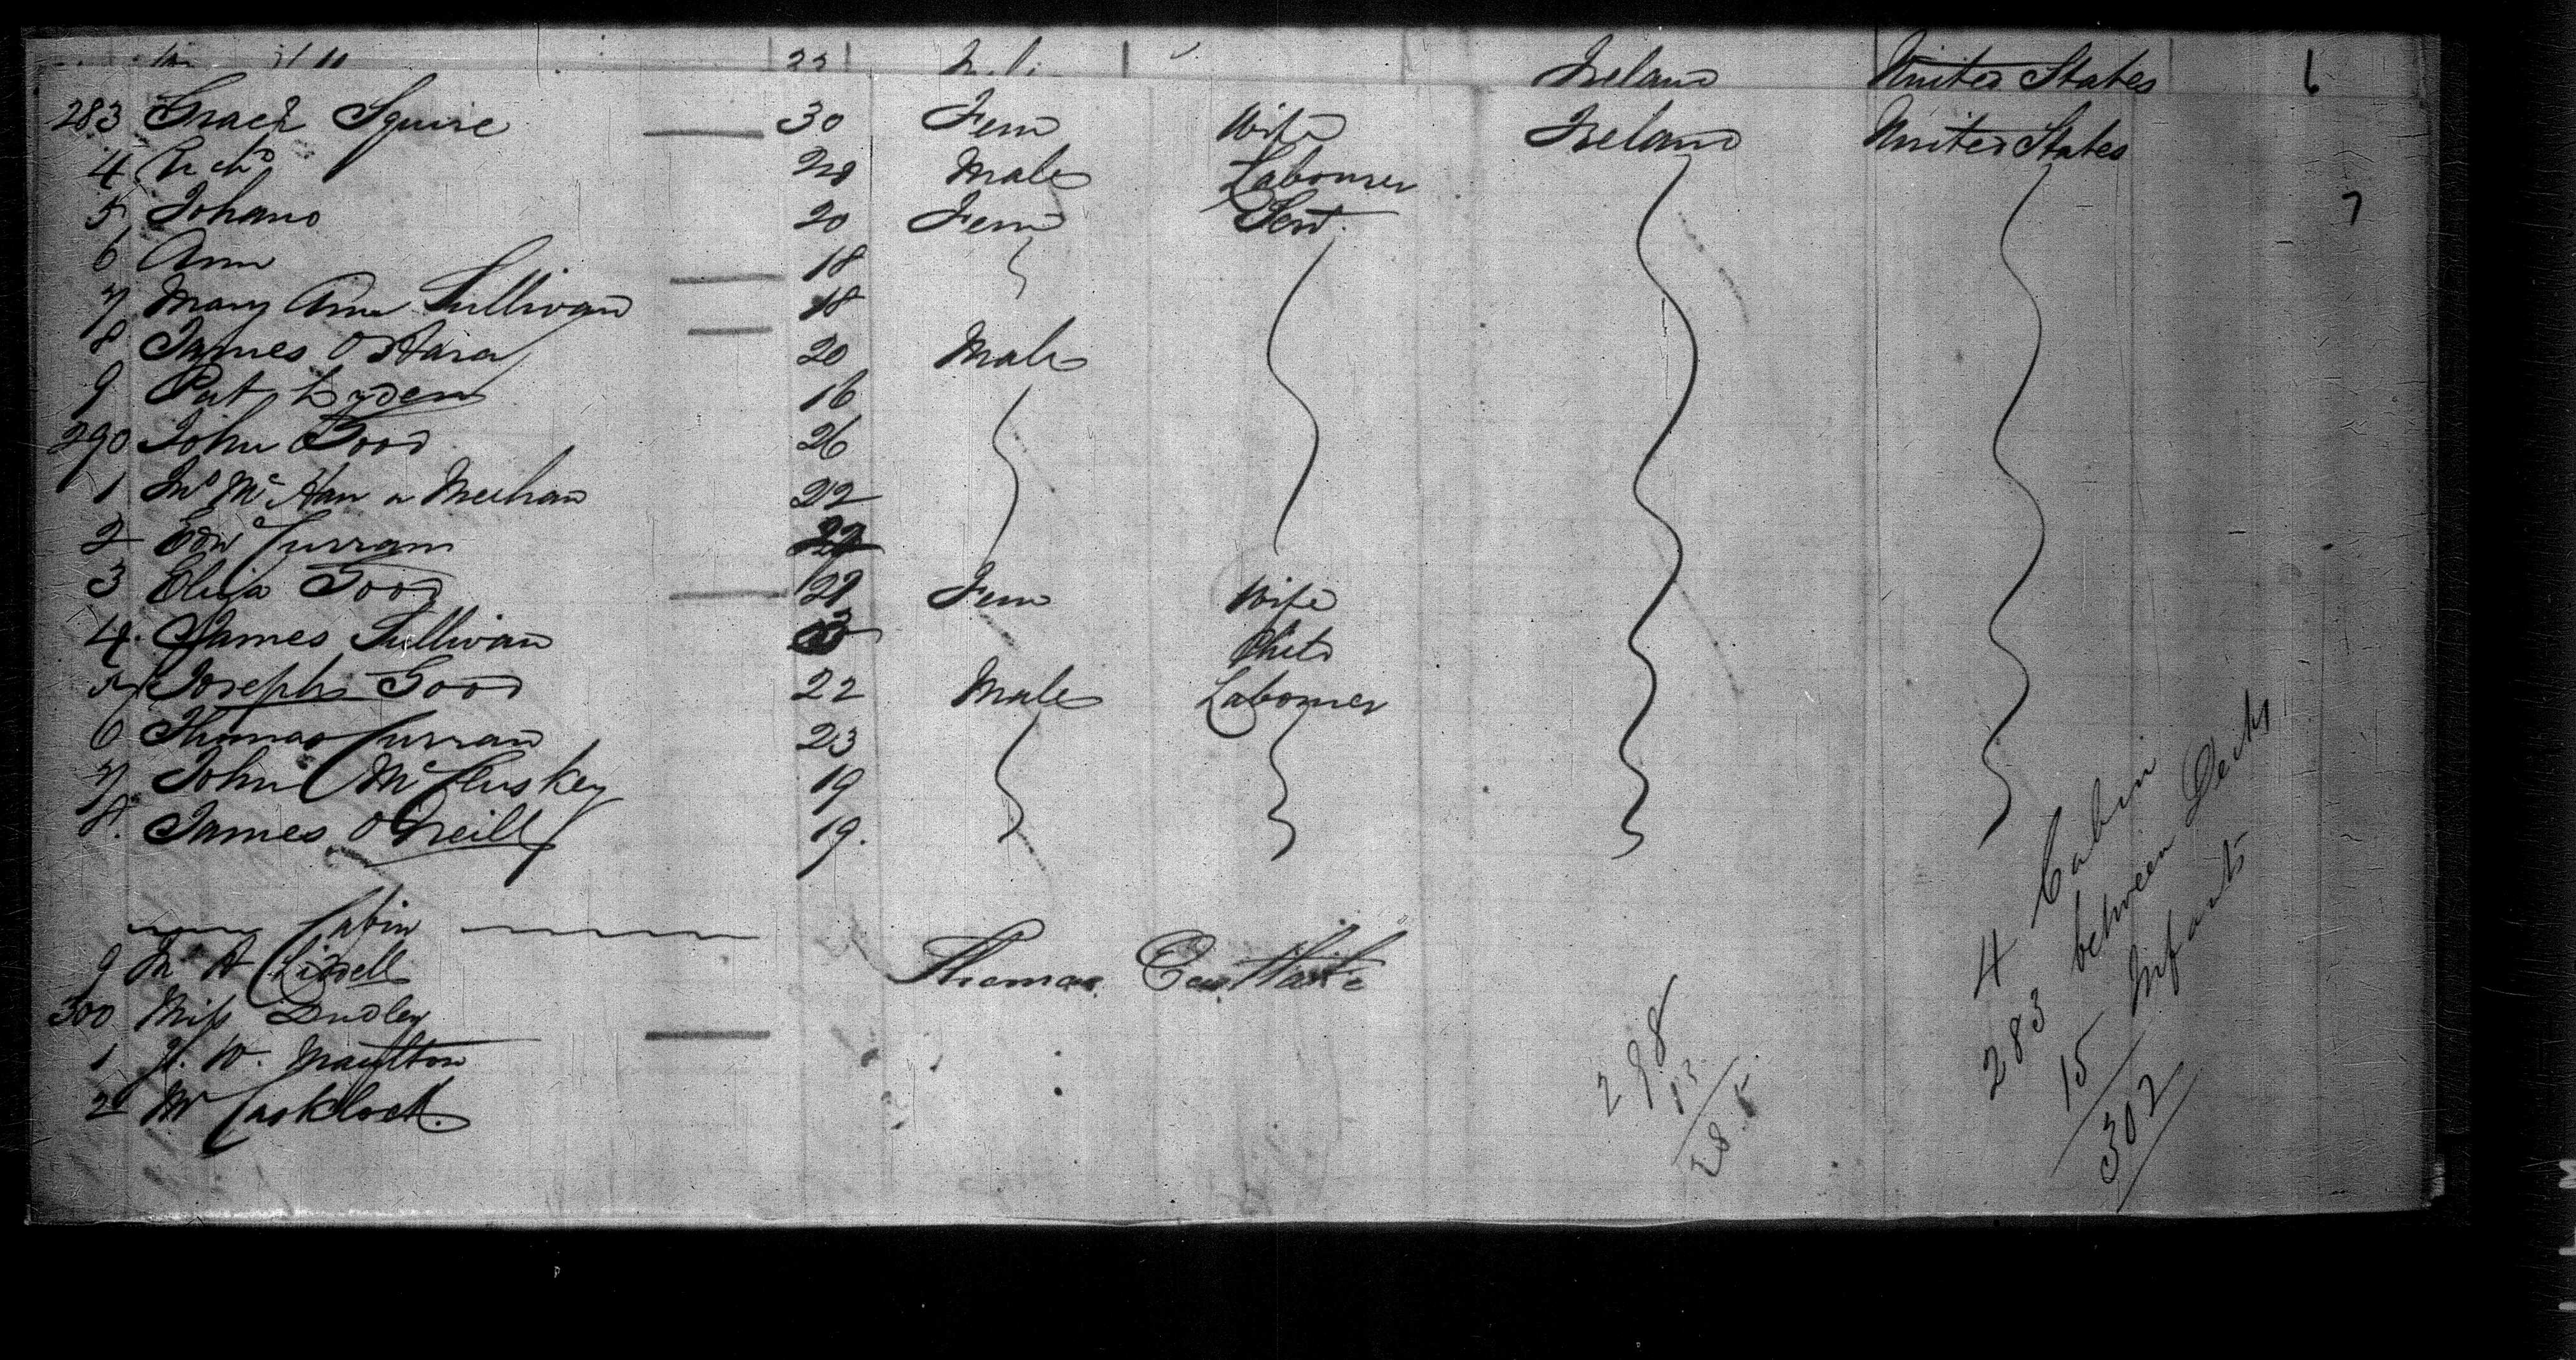 22 Ireland United States 6
283 Grace Squire 30 Fem Wife Ireland United States
4 Richd 20 Male Labourer
5 Johano 20 Fem Sert. 7
6 Ann 18
7 Mary Ann Sullivan 18
8 James O Hara 20 Male
9 Pat Lyden 16
290 John Good 26
1 Jno McHan or Meehan 22
2 Edw Curran 22
3 Eliza Good 29 Fem Wife
4. James Sullivan Child
5 Joseph Good 22 Male Labourer
6 Thomas Curran 23
7 John McCluskey 19
8. James O'Neill 19.
Cabin
9 Mr A Liddell Thomas
300 Miss Dudley
1 H. W. Maulton
2 Mr
298
13
285
4 Cabin
283 between Decks
15 Infants
302